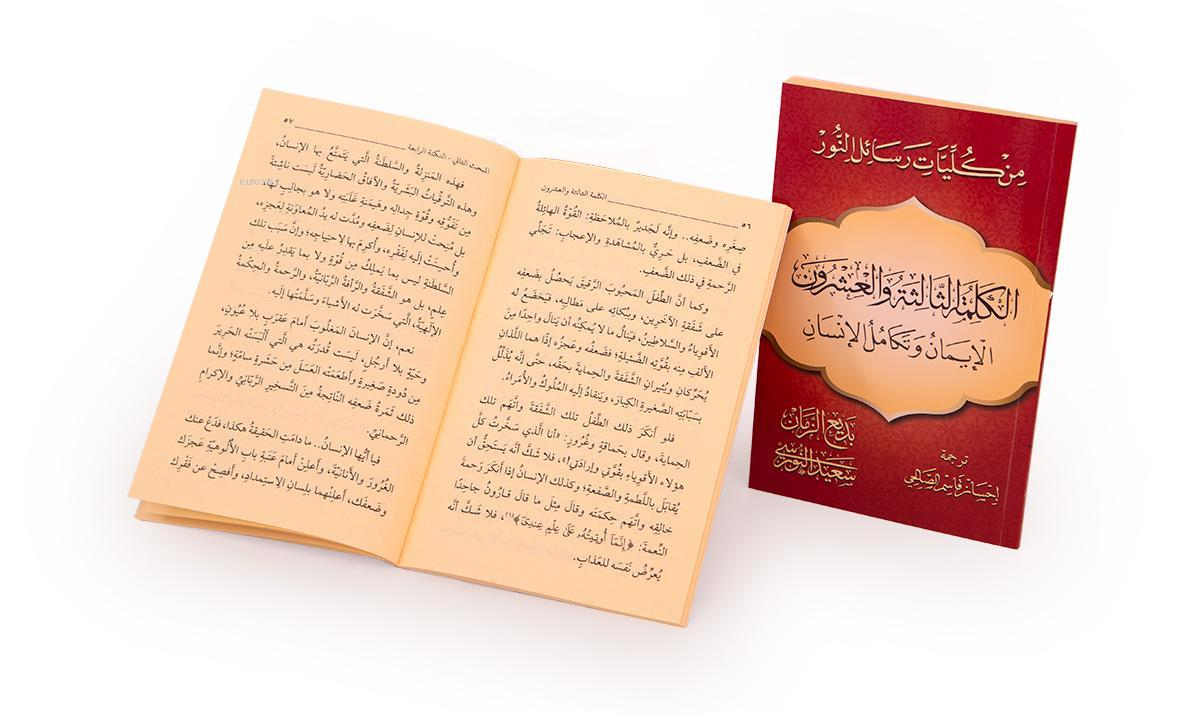 مِنْ كُلِّيَّاتِ رَسَائِلِ النُّوْرِ
الكَلِمَةُ الثَّالِثَةُ وَالْعِشْرُونَ
الْإِيمَانُ وَتَكَامُلُ الْإِنْسَانِ
بَدِيعُ الزَّمَانِ
سَعِيدُ النُّورْسِيّ
ترجمة
إحسان قاسم الصالحي
٥٦
الكلمة الثالثة والعشرون
صِغَره وضَعفِه.. وإنَّه لَجَديرٌ بالمُلاحَظةِ: القُوّةُ الهائِلةُ
في الضَّعفِ، بل حَرِيٌّ بالمُشاهَدةِ والإعجابِ: تَجَلِّي
الرَّحمةِ في ذلك الضَّعفِ.
وكما أنَّ الطِّفلَ المَحبُوبَ الرَّقيقَ يَحصُلُ بضَعفِه
على شَفَقةِ الآخَرِين، وببُكائِه على مَطالِبِه، فيَخضَعُ له
الأقوِياءُ والسَّلاطِينُ، فيَنالُ ما لا يُمكِنُه أن يَنالَ واحِدًا مِنَ
الألفِ مِنه بقُوَّتِه الضَّئيلةِ؛ فضَعفُه وعَجزُه إذًا هما اللَّذانِ
يُحَرِّكانِ ويُثيرانِ الشَّفَقةَ والحِمايةَ بحَقِّه، حتَّى إنَّه يُذَلِّلُ
بسَبّابَتِه الصَّغيرةِ الكِبارَ، ويَنقادُ إلَيه المُلُوكُ والأُمَراءُ.
فلو أَنكَرَ ذلك الطِّفلُ تلك الشَّفَقةَ واتَّهَم تلك
الحِمايةَ، وقال بحَماقةٍ وغُرُورٍ: «أنا الَّذي سَخَّرتُ كلَّ
هؤلاء الأقوِياءِ بقُوَّتي وإرادَتي!»، فلا شَكَّ أنَّه يَستَحِقُّ أن
يُقابَلَ باللَّطمةِ والصَّفعةِ؛ وكذلك الإنسانُ إذا أَنكَرَ رَحمةَ
خالِقِه واتَّهَم حِكمَتَه وقال مِثلَ ما قال قارُونُ جاحِدًا
النِّعمةَ: ﴿إِنَّمَآ أُوتِيتُهُۥ عَلَىٰ عِلْمٍ عِندِىٓ﴾(١)، فلا شَكَّ أنَّه
يُعرِّضُ نَفسَه للعَذابِ.
المبحث الثاني - النكتة الرابعة
٥٧
فهذه المَنزِلةُ والسَّلطَنةُ الَّتي يَتَمتَّعُ بها الإنسانُ،
وهذه التَّرقِّياتُ البَشَريّةُ والآفاقُ الحَضارِيّةُ لَيسَت ناشِئةً
مِن تَفَوُّقِه وقُوّةِ جِدالِه وهَيمَنةِ غَلَبَتِه ولا هو بجالِبٍ لها،
بل مُنِحَت للإنسانِ لِضَعفِه ومُدَّت له يدُ المُعاوَنةِ لِعَجزِه،
وأُحسِنَتْ إلَيه لِفَقْرِه، وأُكرِمَ بها لاحتِياجِه؛ وإنَّ سَبَبَ تلك
السَّلطَنةِ ليس بما يَملِكُ مِن قُوّةٍ ولا بما يَقدِرُ علَيه مِن
عِلمٍ، بل هو الشَّفَقةُ والرَّأفةُ الرَّبّانيّةُ، والرَّحمةُ والحِكْمةُ
الإلٰهِيّةُ، الَّتي سَخَّرَت له الأَشياءَ وسَلَّمَتْها إلَيه.
نعم، إنَّ الإنسانَ المَغلُوبَ أمامَ عَقرَبٍ بلا عُيُونٍ،
وحَيّةٍ بلا أَرجُلٍ، لَيسَت قُدرَتُه هي الَّتي أَلبَسَتْه الحَرِيرَ
مِن دُودةٍ صَغيرةٍ وأَطعَمَتْه العَسَلَ مِن حَشَرةٍ سامّةٍ؛ وإنَّما
ذلك ثَمَرةُ ضَعفِه النّاتِجةُ مِنَ التَّسخِيرِ الرَّبّانِيِّ والإكرامِ
الرَّحمانِيِّ.
فيا أيُّها الإنسانُ.. ما دامَتِ الحَقيقةُ هكذا، فدَعْ عنك
الغُرُورَ والأَنانيّةَ، وأَعلِنْ أمامَ عَتَبةِ بابِ الأُلُوهيّةِ عَجزَك
وضَعفَك، أَعلِنْهما بلِسانِ الِاستِمدادِ، وأَفصِحْ عن فَقْرِك